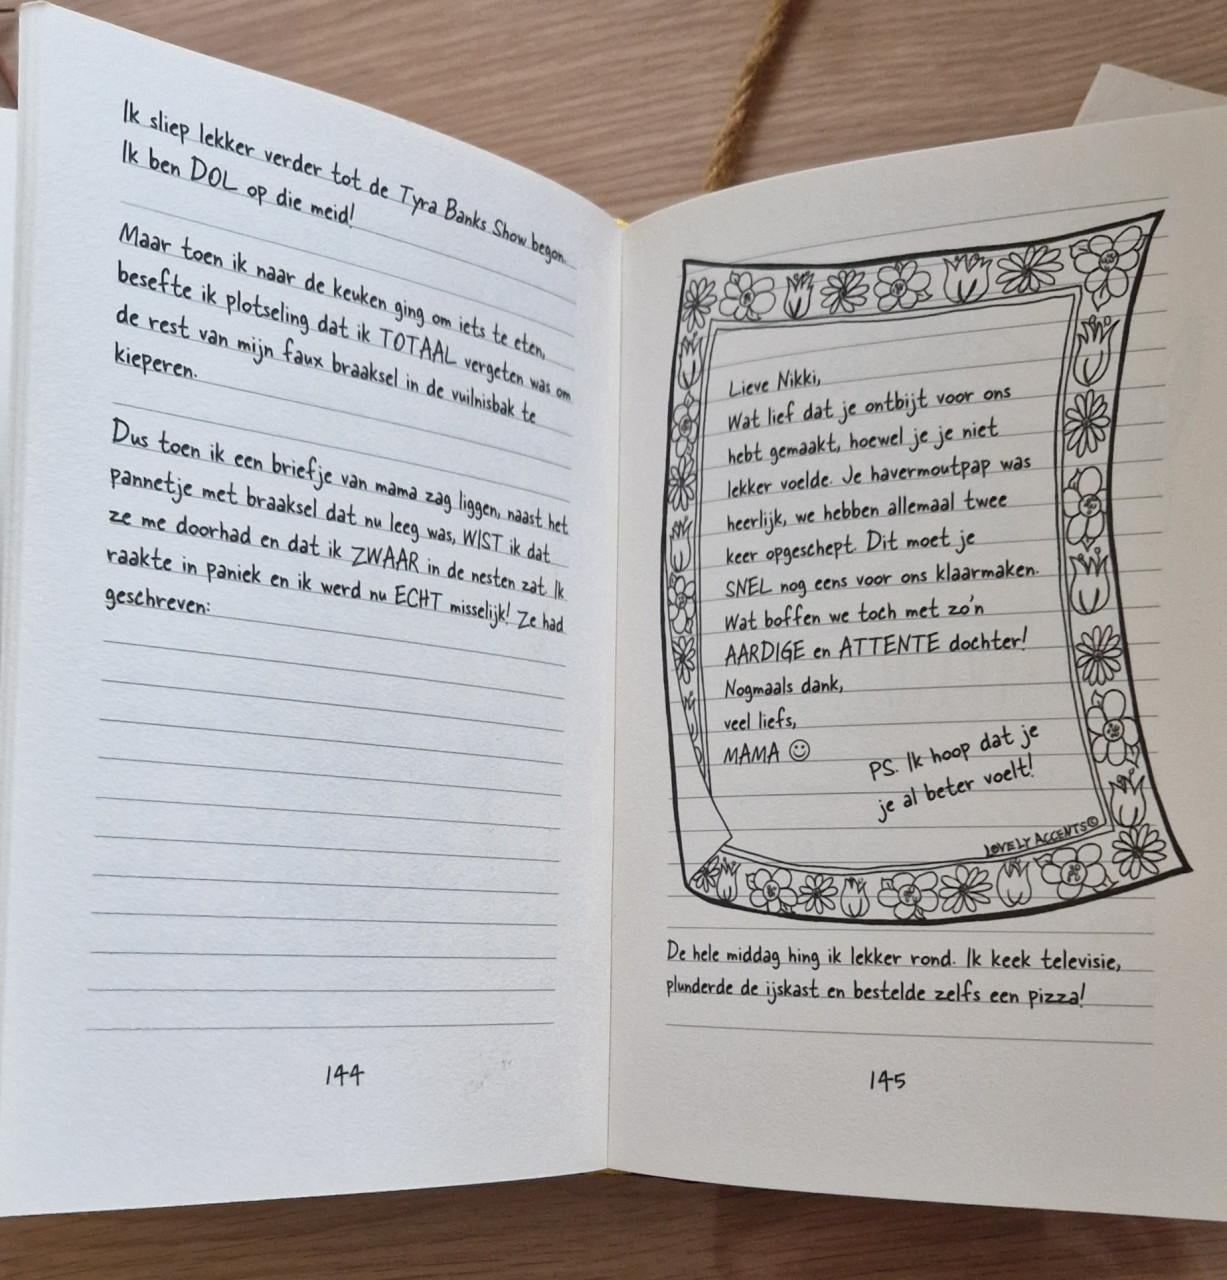 Ik sliep lekker verder tot de Tyra Banks Show begon.
Ik ben DOL op die meid!
Maar toen ik naar de keuken ging om iets te eten,
besefte ik plotseling dat ik TOTAAL vergeten was om
de rest van mijn faux braaksel in de vuilnisbak te
kieperen.
Dus toen ik een briefje van mama zag liggen, naast het
pannetje met braaksel dat nu leeg was, WIST ik dat
ze me doorhad en dat ik ZWAAR in de nesten zat. Ik
raakte in paniek en ik werd nu ECHT misselijk! Ze had
geschreven:
144
Lieve Nikki,
Wat lief dat je ontbijt voor ons
hebt gemaakt, hoewel je je niet
lekker voelde. Je havermoutpap was
heerlijk, we hebben allemaal twee
keer opgeschept. Dit moet je
SNEL nog eens voor ons klaarmaken.
Wat boffen we toch met zo'n
AARDIGE en ATTENTE dochter!
Nogmaals dank,
veel liefs,
MAMA ☺
PS. Ik hoop dat je
je al beter voelt!
LOVELY ACCENTS©
De hele middag hing ik lekker rond. Ik keek televisie,
plunderde de ijskast en bestelde zelfs een pizza!
145